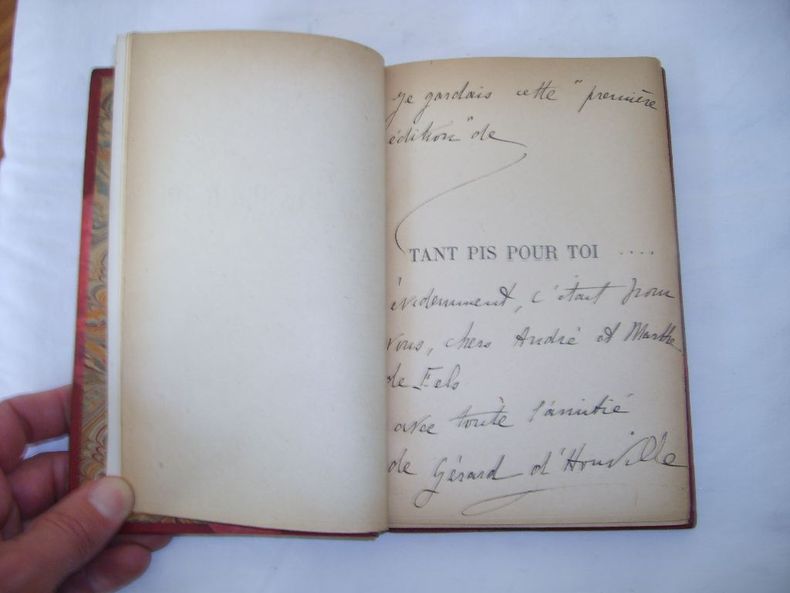 Je gardais cette "première
édition" de
TANT PIS POUR TOI ....
évidemment, c'était pour
vous, chers André et Marthe
de Fels
avec toute l'amitié
de Gérard d'Houville